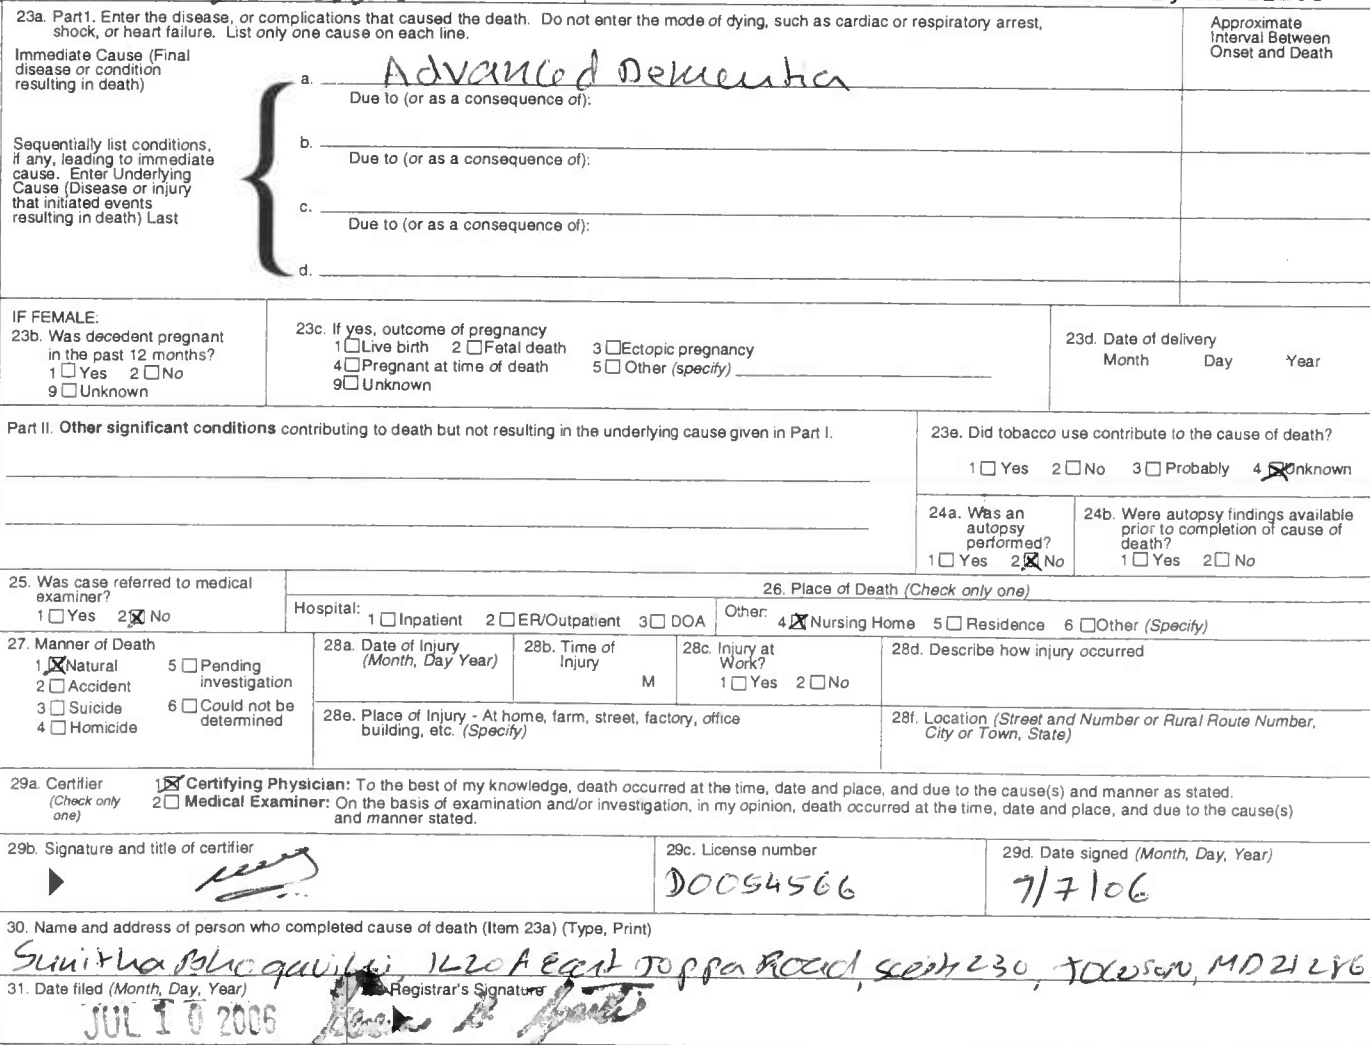 23a. Part1. Enter the disease, or complications that caused the death. Do not enter the mode of dying, such as cardiac or respiratory arrest,
shock, or heart failure. List only one cause on each line.
Approximate
Interval Between
Onset and Death
Immediate Cause (Final
disease or condition
resulting in death)
a. Advanced Dementia
Due to (or as a consequence of):
Sequentially list conditions,
if any, leading to immediate
cause. Enter Underlying
Cause (Disease or injury
that initiated events
resulting in death) Last
b.
Due to (or as a consequence of):
c.
Due to (or as a consequence of):
d.
IF FEMALE:
23b. Was decedent pregnant
in the past 12 months?
1 ☐ Yes 2 ☐ No
9 ☐ Unknown
23c. If yes, outcome of pregnancy
1 ☐ Live birth 2 ☐ Fetal death 3 ☐ Ectopic pregnancy
4 ☐ Pregnant at time of death 5 ☐ Other (specify)
9 ☐ Unknown
23d. Date of delivery
Month Day Year
Part II. Other significant conditions contributing to death but not resulting in the underlying cause given in Part I.
23e. Did tobacco use contribute to the cause of death?
1 ☐ Yes 2 ☐ No 3 ☐ Probably 4 ☒ Unknown
24a. Was an
autopsy
performed?
1 ☐ Yes 2 ☒ No
24b. Were autopsy findings available
prior to completion of cause of
death?
1 ☐ Yes 2 ☐ No
25. Was case referred to medical
examiner?
1 ☐ Yes 2 ☒ No
26. Place of Death (Check only one)
Hospital: 1 ☐ Inpatient 2 ☐ ER/Outpatient 3 ☐ DOA Other: 4 ☒ Nursing Home 5 ☐ Residence 6 ☐ Other (Specify)
27. Manner of Death
1 ☒ Natural 5 ☐ Pending
investigation
2 ☐ Accident
3 ☐ Suicide 6 ☐ Could not be
determined
4 ☐ Homicide
28a. Date of Injury
(Month, Day Year)
28b. Time of
Injury
M
28c. Injury at
Work?
1 ☐ Yes 2 ☐ No
28d. Describe how injury occurred
28e. Place of Injury - At home, farm, street, factory, office
building, etc. (Specify)
28f. Location (Street and Number or Rural Route Number,
City or Town, State)
29a. Certifier
(Check only
one)
1 ☒ Certifying Physician: To the best of my knowledge, death occurred at the time, date and place, and due to the cause(s) and manner as stated.
2 ☐ Medical Examiner: On the basis of examination and/or investigation, in my opinion, death occurred at the time, date and place, and due to the cause(s)
and manner stated.
29b. Signature and title of certifier
29c. License number
D0054566
29d. Date signed (Month, Day, Year)
7/7/06
30. Name and address of person who completed cause of death (Item 23a) (Type, Print)
Sunitha 1220 A East Joppa Road, 230, Towson, MD 21286
31. Date filed (Month, Day, Year)
JUL 10 2006
Registrar's Signature